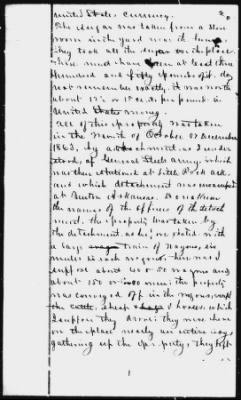 United States currency.
The sugar was taken from a store
room in the yard near the house.
They took all the sugar on the place.
There must have been at least three
hundred and fifty pounds of it. I do
not remember exactly. It was worth
about 12½ or 15 cts. per pound in
United States money.
All of this property was taken
in the month of October or December
1863, by a detachment, as I under
stood, of General Steele's army, which
was then stationed at Little Rock Ark.
and which detachment was encamped
at Benton Arkansas. I do not know
the names of the officers of the detach
ment. The property was taken by
the detachment, as before stated, with
a large train of wagons, six
mules to each wagon. There was I
suppose about 40 or 50 wagons and
about 150 or men. The property
was conveyed off in the wagons, except
the cattle, sheep & horses, which
I suppose they drove. They were there
on the place nearly an entire day,
gathering up the property. They kept